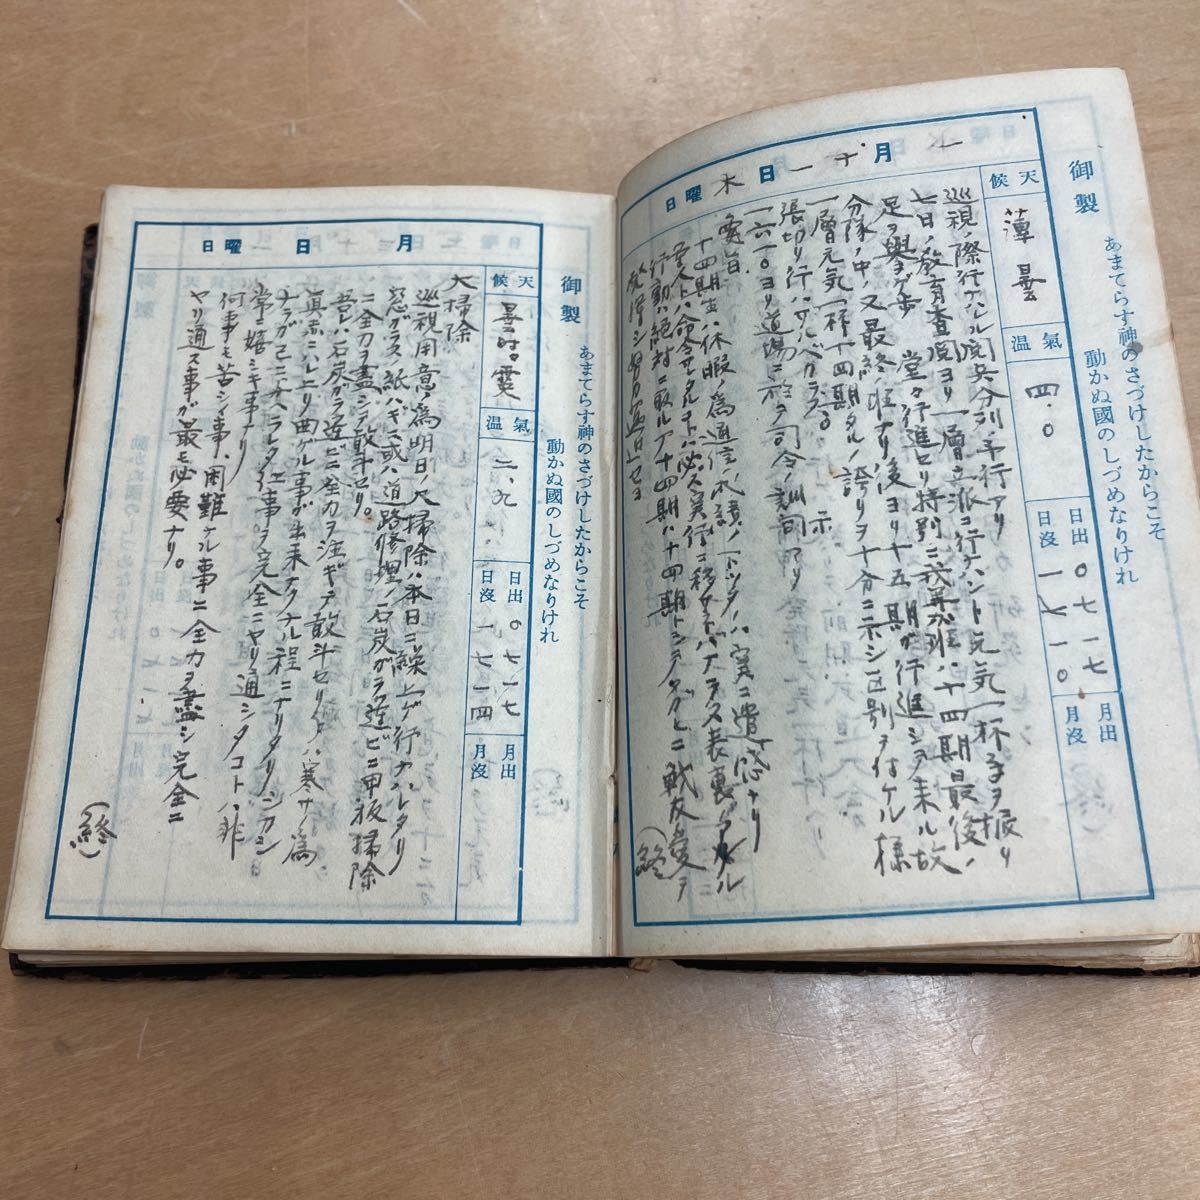 御製
あまてらす神のさづけしたからこそ
動かぬ國のしづめなりけれ
一月十一日 木曜日
天候 薄曇
氣温 四.〇
日出 〇七一七
日没 一七一〇
月出
月没
巡視ノ際行ケハルル閲兵分列予行アリ
七日ノ教育査閲ヨリ一層立派ニ行ナハント元気一杯手ヲ振リ
足ヲ擧ゲ歩 堂々行進セリ特別ニ我第 班ハ十四期最後ノ
分隊ノ中ノ又最終ノ班ナリ後ヨリ十五期ガ行進シヲ来ル故
一層元気一杯十四期タルノ誇リヲ十分ニ示シ区別ヲ付ケル様
張切リ行ハザルベカラズ 示
一六一〇ヨリ道場ニ於テ司令ノ訓示アリ
要旨
十四期生ハ休暇ノ為通信 成績ノ ハ実ニ遺感ナリ
軍人ハ命令セタルコトハ必ズ実行ニ移サネバナラズ表裏ノ ル
行動ハ絶対ニ敢ルナ十四期ハ十四期トシテタガヒニ戦友愛ヲ
發揮シ努力邁進セヨ
(終)
御製
あまてらす神のさづけしたからこそ
動かぬ國のしづめなりけれ
月 日 曜日
天候 曇時々雲
氣温 二、九
日出 〇七一七
日没 一七一四
月出
月没
大掃除
巡視用意ノ為明日ノ大掃除ハ本日ニ繰上ゲ行ナハレタリ
窓ガラス紙ハギ或ハ道路修理ノ石炭ガラ並ビニ甲板掃除
ニ全力ヲ盡シテ敢斗セリ。
吾ハ石炭ガラ並ビニ全力ヲ注ギテ敢斗セリタメハ寒サノ為
眞赤ニハレ上リ曲ゲル事ガ出来ナクナル程ニナリタリシカシ
ナガラ己ニ ヘラレタ仕事ヲ完全ニヤリ通シタコトハ非
常ニ嬉シキ事ナリ
何事モ苦シキ事、困難ナル事ニ全力ヲ盡シ完全ニ
ヤリ通ス事ガ最モ必要ナリ。
(終)